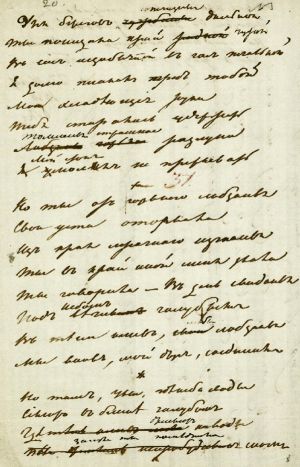 20.
отчизны
Для берегов чужбины дальной
Ты покидала край родной чужой
В час незабвенный в час печальный
Я долго плакал пред тобой
Мои хладеющие руки
Тебя старались удержать
Томленья страшного
разлуки
Мой стон
молил не прерывать
Но ты от горького лобзанья
Свои уста оторвала
Из края мрачного изгнанья
Ты в край иной меня звала
Ты говорила — В день свиданья
Под небом голубым
В тени олив, любви лобзанья
Мы вновь, мой друг, соединим
*
Но там, увы, где неба своды
Сияют в блеске голубом
Где воды
заснула ты последним
сном